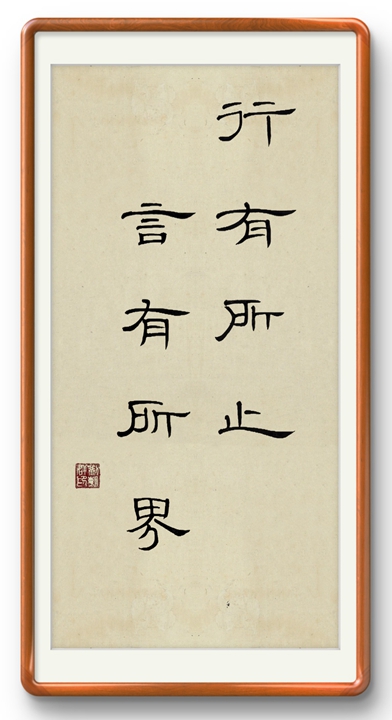 行有所止
言有所界